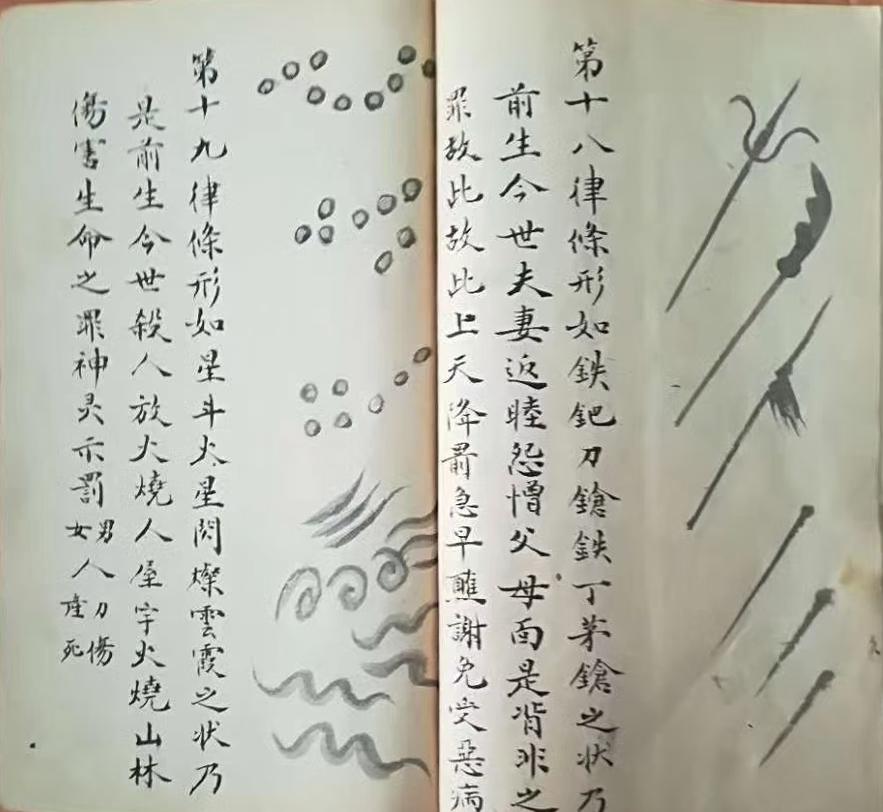 第十八律條形如鉄鈀刀鎗鉄丁茅鎗之状乃
前生今世夫妻返睦怨憎父母面是背非之
罪故此故此上天降罰急早醮謝免受惡病
第十九律條形如星斗火星閃燦雲霞之状乃
是前生今世殺人放火燒人屋宇火燒山林
傷害生命之罪神灵示罰男人刀傷
女人產死